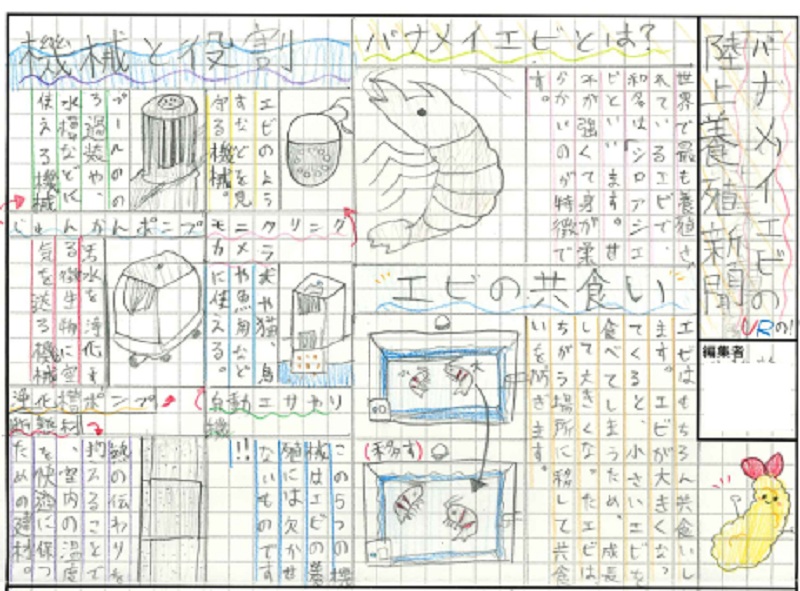 バナメイエビの
陸上養殖新聞
VRの!
編集者
バナメイエビとは?
世界で最も養殖さ
れているエビで、
和名は「シロアシエ
ビといいます。甘
みが強くて身が柔
らかいのが特徴で
す。
エビの共食い
エビはもちろん共食いし
ます。エビが大きくなっ
てくると、小さいエビを
食べてしまうため、成長
して大きくなったエビは
ちがう場所に移して共食
いを防ぎます。
大
(移す)
機械と役割
モニタリング
カメラ
エビのよう
すなどを見
守る機械。
じゅんかんポンプ
プールの
ろ過装や、
水槽などに
使える機械
自動エサやり
機
犬や猫、鳥
や魚用など
に使える。
浄化槽ポンプ
汚水を浄化す
る微生物に空
気を送る機械
断熱材
熱の伝わりを
抑えることで
、室内の温度
を快適に保つ
ための建材。
この5つの機
械はエビの養
殖には欠かせ
ないものです
!!